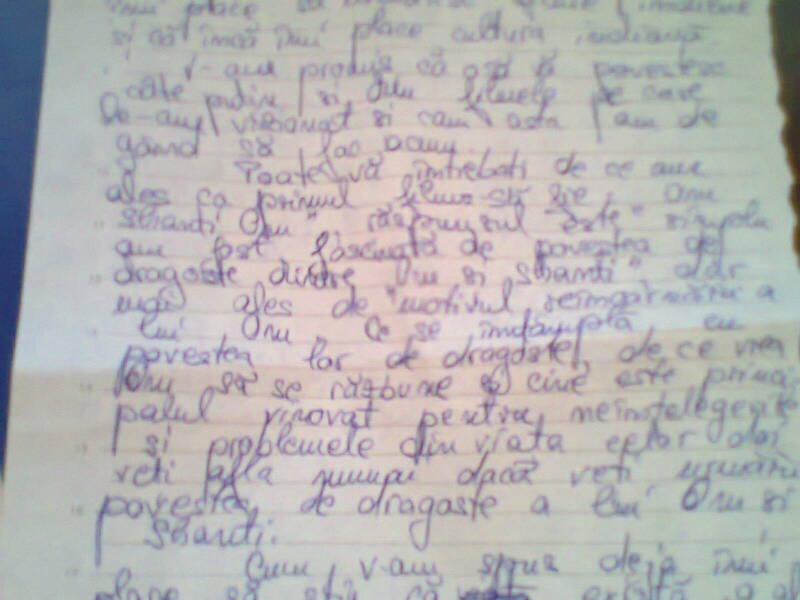 îmi place să
și că încă îmi place cultura indiană.
V-am promis că o să vă povestesc
câte puțin și din filmele pe care
le-am vizionat și cam asta am de
gând să fac acum.
Poate vă întrebați de ce am
ales ca primul film să fie Om
Shanti Om" răspunsul este" simplu
am fost fascinată de povestea de
dragoste dintre Om și Shanti" dar
mai ales de "motivul reîncarnării a
lui Om. Ce se întâmplă cu
povestea lor de dragoste, de ce vrea
Om să se răzbune și cine este princi-
palul vinovat pentru neînțelegerile
și problemele din viața celor doi
veți afla numai dacă veți urmări
povestea de dragoste a lui Om și
Shanti.
Cum v-am spus deja îmi
place să știu că există